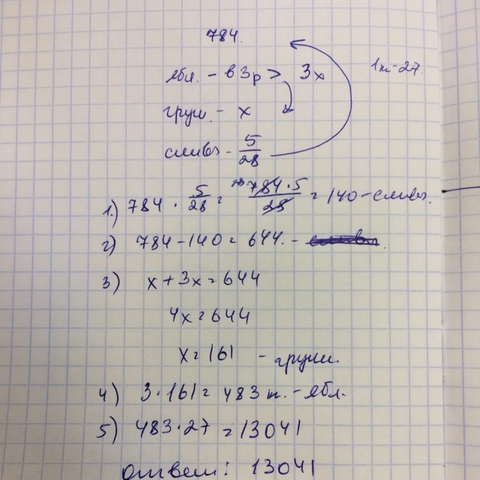 784.
ябл. - в 3р > 3x
1 т - 27
груш. - x
сливы - 5/28
1.) 784 · 5/28 = 784·5/28 = 140 - сливы.
2) 784 - 140 = 644. -
3) x + 3x = 644
4x = 644
x = 161 - груши.
4) 3 · 161 = 483 т. - ябл.
5) 483 · 27 = 13041
ответ: 13041